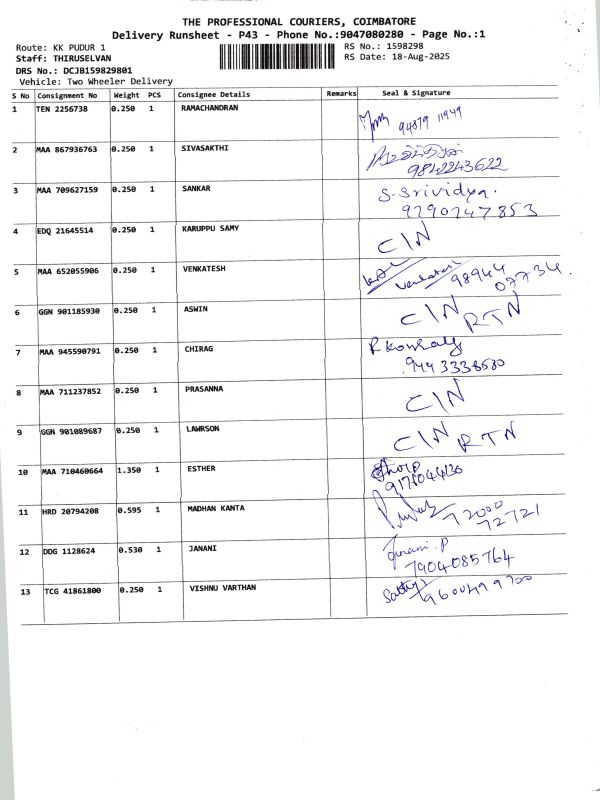 THE PROFESSIONAL COURIERS, COIMBATORE
Delivery Runsheet - P43 - Phone No.:9047080280 - Page No.:1
Route: KK PUDUR 1 RS No.: 1598298
Staff: THIRUSELVAN RS Date: 18-Aug-2025
DRS No.: DCJB159829801
Vehicle: Two Wheeler Delivery
S No Consignment No Weight PCS Consignee Details Remarks Seal & Signature
1 TEN 2256738 0.250 1 RAMACHANDRAN 94879 11949
2 MAA 867936763 0.250 1 SIVASAKTHI
9842243622
3 MAA 709627159 0.250 1 SANKAR S. Srividya.
9790747853
4 EDQ 21645514 0.250 1 KARUPPU SAMY CIN
5 MAA 652055906 0.250 1 VENKATESH Venkatesh 98944
07734
6 GGN 901185930 0.250 1 ASWIN CIN RTN
7 MAA 945590791 0.250 1 CHIRAG
9443338580
8 MAA 711237852 0.250 1 PRASANNA CIN
9 GGN 901089687 0.250 1 LAWRSON CIN RTN
10 MAA 710460664 1.350 1 ESTHER
11 HRD 20794208 0.595 1 MADHAN KANTA 72000
72721
12 DDG 1128624 0.530 1 JANANI Janani. P
7904085764
13 TCG 41861800 0.250 1 VISHNU VARTHAN 9600499700